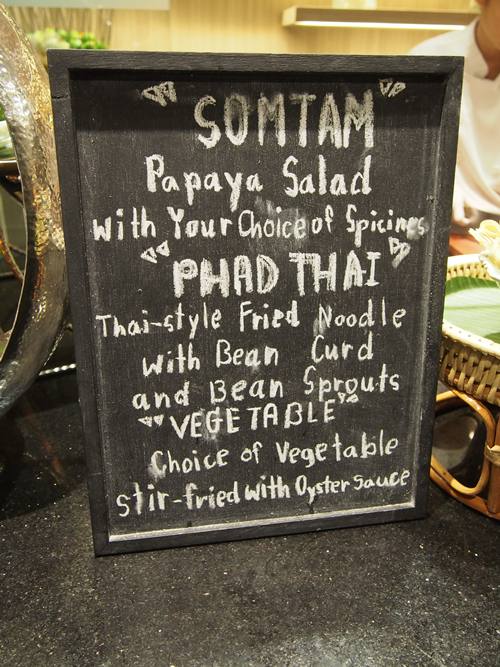 "SOMTAM"
Papaya Salad
with Your Choice of Spicines
"PHAD THAI"
Thai-style Fried Noodle
with Bean Curd
and Bean Sprouts
"VEGETABLE"
Choice of Vegetable
Stir-fried with Oyster Sauce